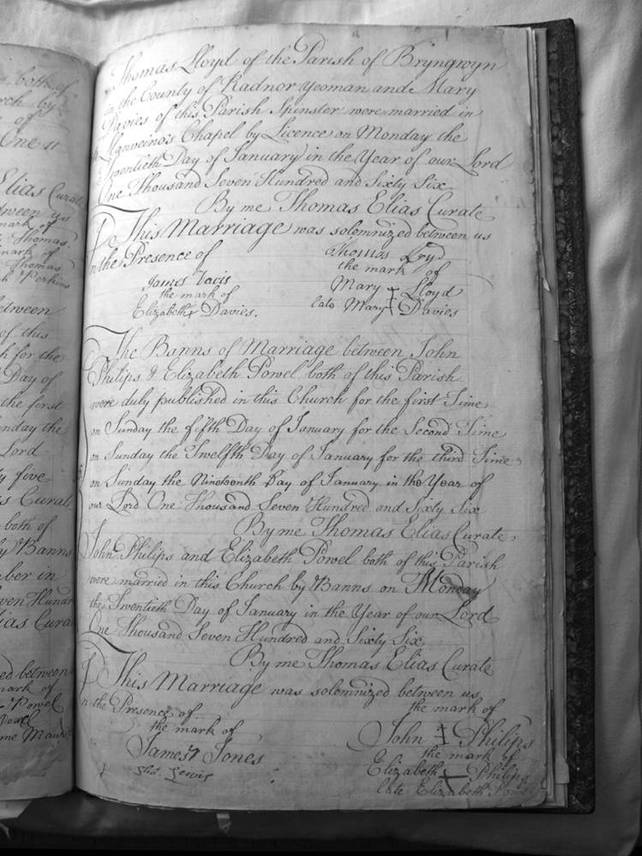 both of
rch by
of
One 11
Elias Curate
tween us
mark of
Thomas
mark of
Thomas
Perkins
between
of this
h for the
Day of
the first
nday the
Lord
y five
s Curate
both of
y Banns
ber in
ven Hundr
ias Curate
ed between
mark of
Powel
Powel
me
Thomas Lloyd of the Parish of Bryngwyn
in the County of Radnor yeoman and Mary
Davies of this Parish Spinster were married in
Chapel by Licence on Monday the
Twentieth Day of January in the Year of our Lord
One Thousand Seven Hundred and Sixty Six
By me Thomas Elias Curate
This Marriage was solemnized between us
In the Presence of
Thomas Lryd
the mark of
Mary Lloyd
late Mary Davies
James Davis
the mark of
Elizabeth Davies.
The Banns of Marriage between John
Philips & Elizabeth Powel both of this Parish
were duly published in this Church for the first Time
on Sunday the fifth Day of January for the Second Time
on Sunday the Twelfth Day of January for the third Time
on Sunday the Nineteenth Day of January in the Year of
our Lord One Thousand Seven Hundred and Sixty Six
By me Thomas Elias Curate
John Philips and Elizabeth Powel both of this Parish
were married in this Church by Banns on Monday
the Twentieth Day of January in the Year of our Lord
One Thousand Seven Hundred and Sixty Six
By me Thomas Elias Curate
This Marriage was solemnized between us
In the Presence of
the mark of
John Philips
the mark of
Elizabeth Philips
late Elizabeth
the mark of
James Jones
Lewis